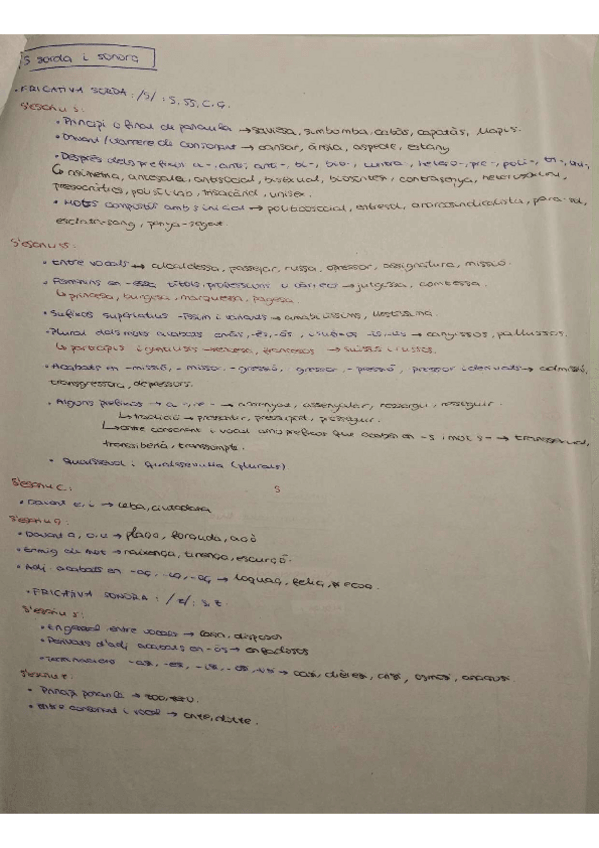 S sorda i sonora
• FRICATIVA SORDA: /s/: s, ss, c, ç.
S'escriu s:
• Principi o final de paraula → saviesa, simbomba, cabàs, capatàs, llapis.
• Davant/darrere de consonant → cansar, ànsia, aspecte, estany
• Després dels prefixos a-, anti-, bi-, bio-, contra-, hetero-, pre-, poli-, tri-, uni-,
↳ asimetria, antesala, antisocial, bisexual, biosíntesi, contrasenya, heterosexual,
presocràtics, trisecànd, unisex.
• Mots compostos amb s inicial → politicosocial, entresol, anarcosindicalista, para-sol,
escura-sang, penya-segat.
S'escriu ss:
• Entre vocals → alcaldessa, passejar, russa, opressor, assignatura, missió.
• Femenins en -essa: títols, professions o càrrecs → jutgessa, comtessa.
↳ princesa, burgesa, marquesa, pagesa.
• Sufixos superlatius -íssim i variants →
• Plural dels mots acabats en às, -ès, -òs, → canyissos, pallussos.
↳ participis i gentilicis → francesos → suïssos i russos.
• Acabats en -missió, -missor, -gressió, gressor, -pressió, pressor i derivats → admissió,
transgressora, depressors.
• Alguns prefixos → a-, re- → assenyalar, ressorgir, resseguir.
↳ tradició → pressentir,
↳ entre consonant i vocal amb prefixos que acaben en -s i mot s- → transsexual,
transsiberià, transsumpte.
• (plurals)
S'escriu c: s
• Davant e, i → ceba, ciutadana
S'escriu ç:
• Davant a, o, u → plaça, forçuda, açò
• Enmig de mot → naixença, temença, escurçó.
• Adj. acabats en -aç, -iç, -oç → loquaç, feliç, feroç.
• FRICATIVA SONORA: /z/: s, z
S'escriu s:
• En general entre vocals → casa, disposar
• Derivats d'adj acabats en -ós → enfadosos
• Terminacions -asi, -esi, -isi, -osi, -usi → quasi, dièresi, crisi, osmosi,
S'escriu z:
• Principi paraula → zoo, zero.
• Entre consonant i vocal → onze, dotze.